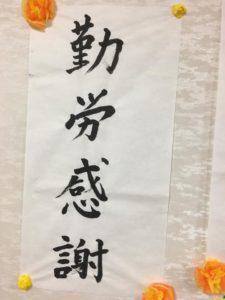 勤労感謝